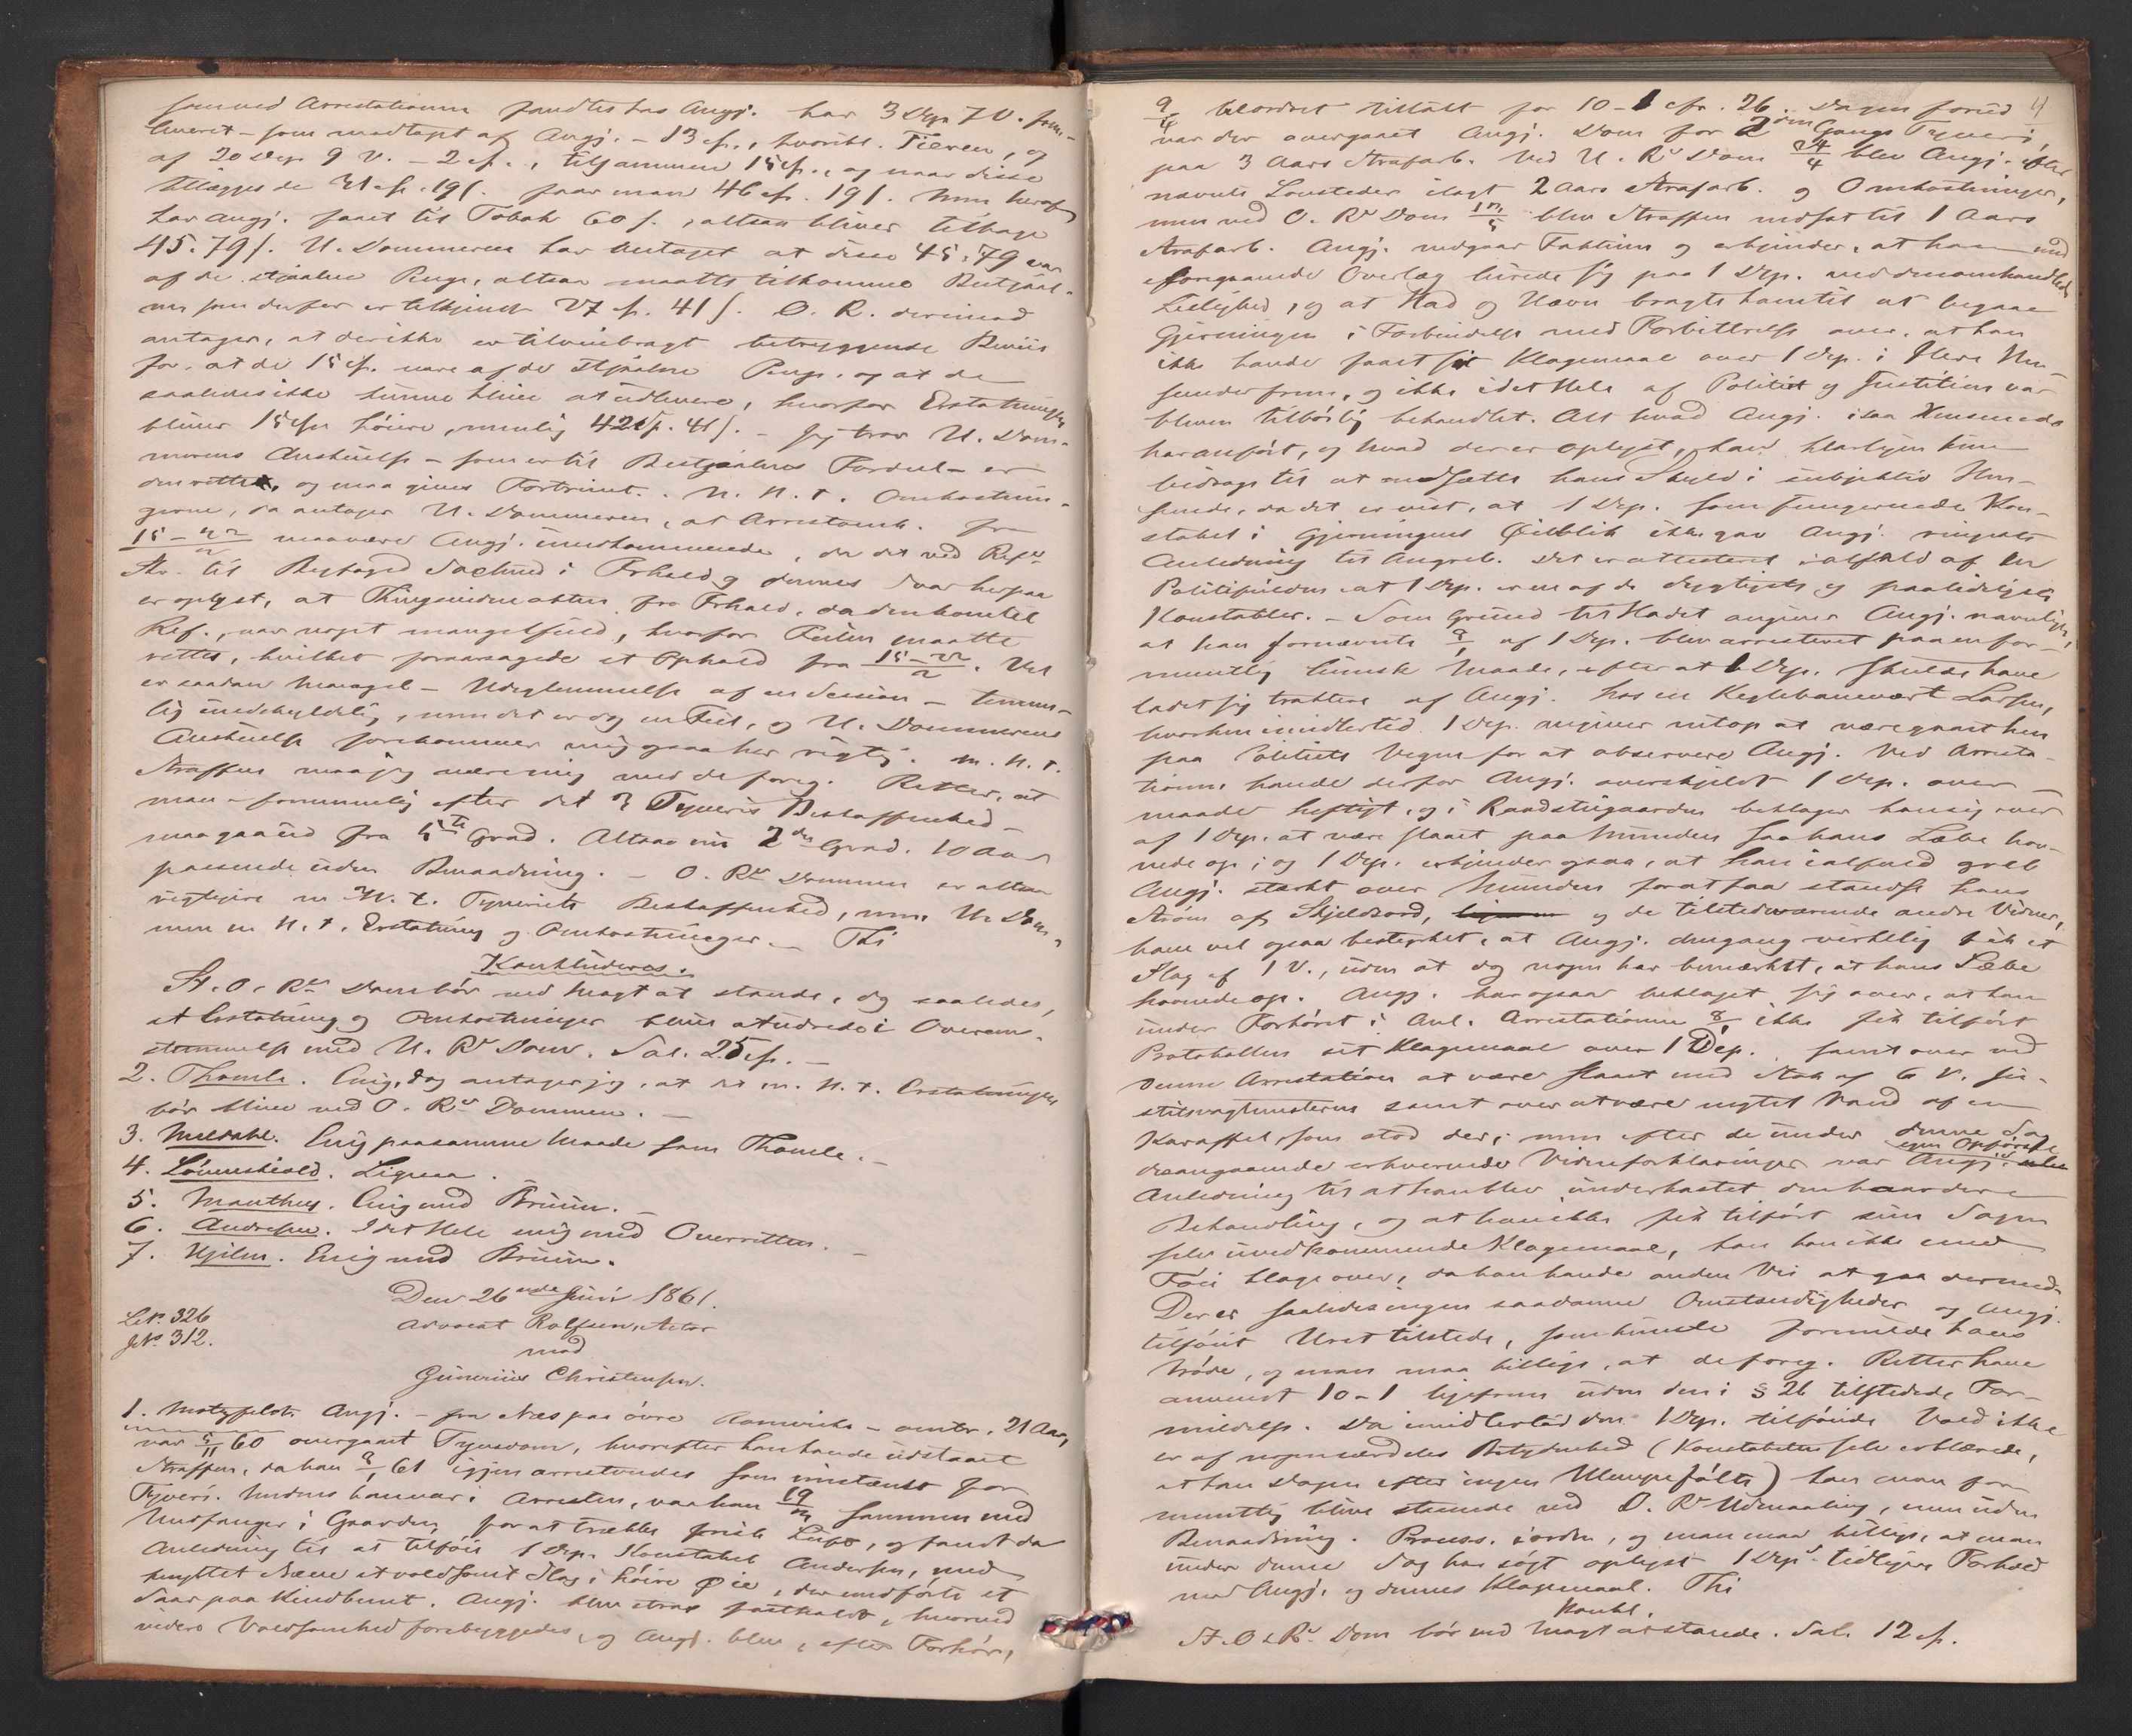 som ved Arrestationen fandtes hos Angj. har 3 Dep. 7 V. frem-
leveret – som modtaget af Angj. – 13 sp., hvoribl. Tieren, og
af 20 Dep. 9 V. – 2 sp., tilsammen 15 sp., og naar disse
tillægges de 31 sp. 19 s. faar man 46 sp. 19 s. Men heraf
har Angj. faaet til Tobak 60 s., altsaa bliver tilbage
45.79 s. U. Dommeren har antaget at disse 45.79 var
af de stjaalne Penge, altsaa maatte tilkomme Bestjaal-
ne som derfor er tilkjendt 27 sp. 41 s. O. R. derimod
antager, at der ikke er tilveiebragt betryggende Beviis
for, at de 15 sp. vare af de stjaalne Penge, og at de
saaledes ikke kunne blive at udlevere, hvorfor Erstatningen
bliver 15 sp. høiere, nemlig 42 sp. 41 s. – Jeg tror U. Dom-
merens Anskuelse – som er til Bestjaalnes Fordeel – er
den rette, og maa gives Fortrinet. M. H. t. Omkostnin-
gerne, da antager U. Dommeren, at Arrestomk. fra
15–22/2 maa være Angj. uvedkommende, da det ved Refs
Skr. til Byfoged i og dennes Svar herpaa
er oplyst, at Thingsvidneakten fra , da den kom til
Ref., var noget mangelfuld, hvorfor Feilen maatte
rettes, hvilket foraarsagede et Ophold fra 15–22/2. Vel
er saadan Mangel – Udeglemmelse af en Session – temme-
lig undskyldelig, men det er dog en Feil, og U. Dommerens
Anskuelse forekommer mig ogsaa her rigtig. M. H. t.
Straffen maa jeg være enig med de foreg. Retter, at
man – fornemmelig efter det 3 Tyveris Beskaffenhed –
maa gaa ud fra 5te Grad. Altsaa nu 2den Grad. 10 Aar
passende uden Benaadning. – O. Rs Dommen er altsaa
rigtigere m. H. t. Tyveriets Beskaffenhed, men U. Dom-
men m. H. t. Erstatning og Omkostninger. – Thi
Konkluderes.
St. O. Rs Dom bør ved Magt at stande, dog saaledes,
at Erstatning og Omkostninger blive at udrede i Overens-
stemmelse med U. Rs Dom. Sal. 25 sp. –
2. Thomle. Enig, dog antager jeg, at det m. H. t. Erstatningen
bør blive ved O. Rs Dommen. –
3. Meldahl. Enig paa samme Maade som Thomle. –
4. Løvenskiold. Ligesaa.
5. Manthey. Enig med Bruun. –
6. Andresen. I det Hele enig med Overretten. –
7. Hjelm. Enig med Bruun.
Den 26nde Juni 1861.
L.No. 326
J.No. 312.
Advocat Rolfsen, Actor
mod
Gunerius Christensen.
1. Motzfeldt. Angj. – fra Næs paa øvre Romerike – omtr. 21 Aar,
var 5/11 60 overgaaet Tyvsdom, hvorefter han havde udstaaet
Straffen, da han 8/1 61 igjen arresteredes som mistænkt for
Tyveri. Medens han var i Arresten, var han 19/2 sammen med
Medfanger i Gaarden for at trække frisk Luft, og fandt da
Anledning til at tilføie 1 Dep. Konstabel Andersen, med
knyttet Næve et voldsomt Slag i høire Øie, der medførte et
Saar paa Kindbenet. Angj. blev strax fastholdt, hvorved
videre Voldsomhed forebyggedes, og Angj. blev, efter Forhør,
4
9/4 beordret tiltalt for 10-1 cfr. 26. Dagen forud
var der overgaaet Angj. Dom for 2den Gangs Tyveri,
paa 3 Aars Strafarb. Ved U. Rs Dom 24/4 blev Angj. efter
nævnte Lovsteder ilagt 2 Aars Strafarb. og Omkostninger,
men ved O. Rs Dom /5 blev Straffen nedsat til 1 Aars
Strafarb. Angj. vedgaar Faktum og erkjender, at han med
foregaaende Overlæg lurede sig paa 1 Dep. ved den omhandlede
Leilighed, og at Had og Hævn bragte ham til at begaae
Gjerningen i Forbindelse med Forbittrelse over, at han
ikke havde faaet sit Klagemaal over 1 Dep. i flere Hen-
seender frem, og ikke i det Hele af Politiet og Justitien var
bleven tilbørlig behandlet. Alt hvad Angj. i saa Henseende
har anført, og hvad der er oplyst, kan klarligen kun
bidrage til at nedsætte hans Skyld i subjektiv Hen-
seende, da det er vist, at 1 Dep. som fungerende Kon-
stabel i Gjerningens Øieblik ikke gav Angj. ringeste
Anledning til Angreb. Det er attesteret ialfald af en
Politifuldm. at 1 Dep. er en af de dygtigste og paalideligste
Konstabler. – Som Grund til Hadet angiver Angj. navnligen,
at han fornævnte 8/1 af 1 Dep. blev arresteret paa en for-
mentlig lumsk Maade, efterat 1 Dep. skulde have
ladet sig traktere af Angj. hos en Keglebanevært Larsen,
hvorhen imidlertid 1 Dep. angiver netop at være gaaet hen
paa Politiets Vegne for at observere Angj. Ved Arresta-
tionen havde derfor Angj. overskjeldt 1 Dep. over-
maade heftigt, og i Raadstuegaarden beklager han sig over
af 1 Dep. at være slaaet paa Munden saa hans Læbe hov-
nede op; og 1 Dep. erkjender ogsaa, at han ialfald greb
Angj. stærkt over Munden for at faa standse hans
Strøm af Skjeldsord, og de tilstedeværende andre Vidner,
have vel ogsaa bestyrket, at Angj. dengang virkelig fik et
Slag af 1 V., uden at dog nogen har bemærket, at hans Læbe
hovnede op. Angj. har ogsaa beklaget sig over, at han
under Forhøret i Anl. Arrestationen 8/1 ikke fik tilført
Protokollen sit Klagemaal over 1 Dep., samt over ved
denne Arrestation at være slaaet med Stok af 6 V. Ju-
stitsvagtmesteren samt over at være negtet Vand af en
Karaffel, som stod der; men efter de under denne Sag
desangaaende erhvervede Vidneforklaringer var Angjs egen Opførsel
Anledning til at han blev underkastet den haardere
Behandling, og at han ikke fik tilført sine Sagen
selv uvedkommende Klagemaal, kan han ikke med
Føie klage over, da han havde anden Vei at gaa dermed.
Der er saaledes ingen saadanne Omstændigheder og Angj.
tilføiet Uret tilstede, som kunde formilde hans
Brøde, og man maa billige, at de foreg. Retter have
anvendt 10-1 ligefrem uden den i § 26 tilstedede For-
mildelse. Da imidlertid den 1 Dep. tilføiede Vold ikke
er af nogen særdeles Betydenhed (Konstabelen selv erklærede,
at han Dagen efter ingen Ulempe følte) kan man for-
mentlig blive staaende ved O. Rs Udmaaling, men uden
Benaadning. Process. i orden, og man maa billige, at man
under denne Sag har søgt oplyst 1 Deps tidligere Forhold
mod Angj. og dennes Klagemaal. Thi
Konkl.
St. O. Rs Dom bør ved Magt at stande. Sal. 12 sp.